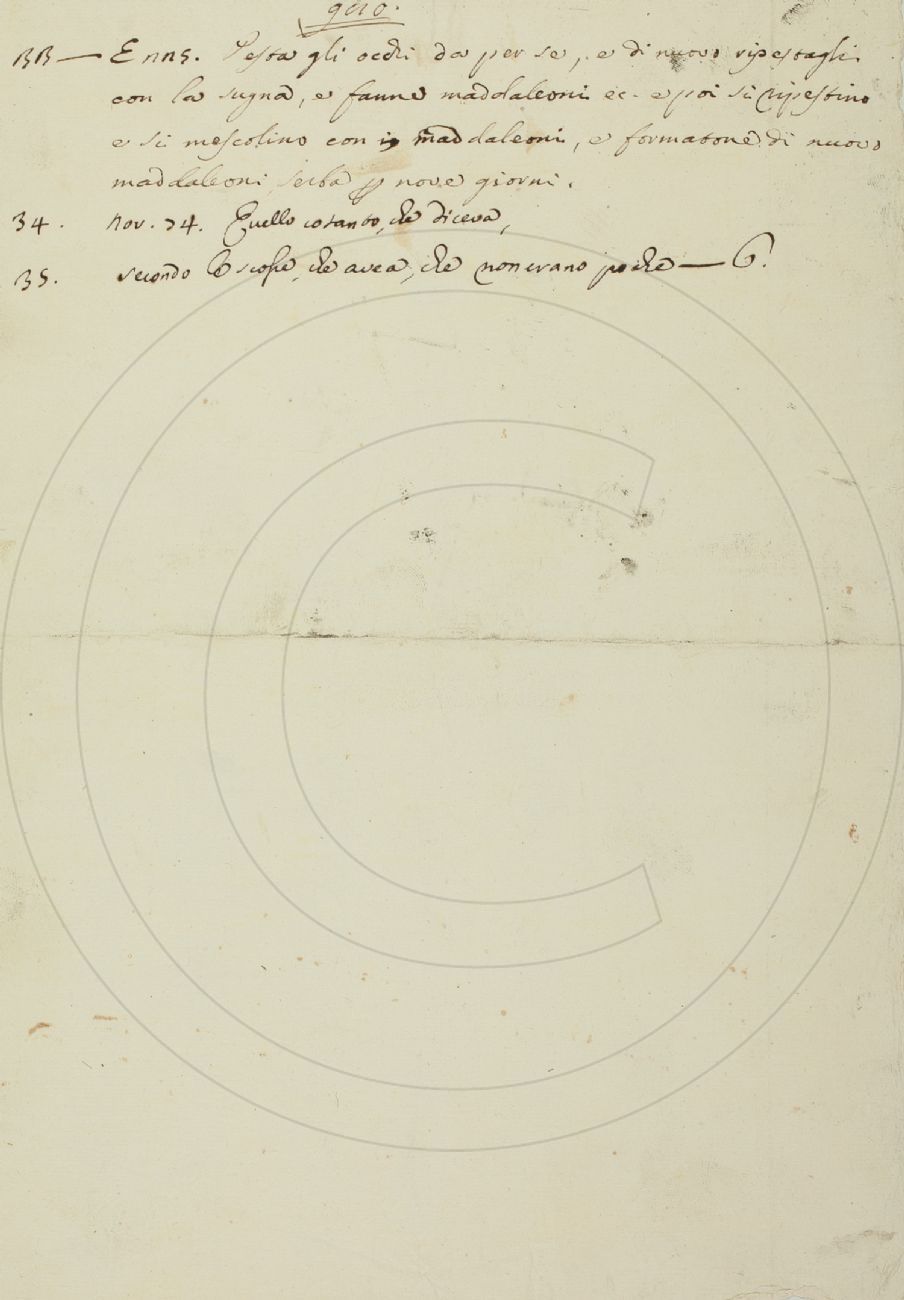 33 — E nn5. Pesta gli occhi da per se, e di nuovo ripestagli
con la sugna, e fanne maddaleoni ec. e poi si ripestino
e si mescolino con maddaleoni, e formatone di nuovo
maddaleoni serba p nove giorni.
34. nov. 74. Quello cotanto, che diceva,
35. secondo le scose, che avea, che non erano poche — 6.